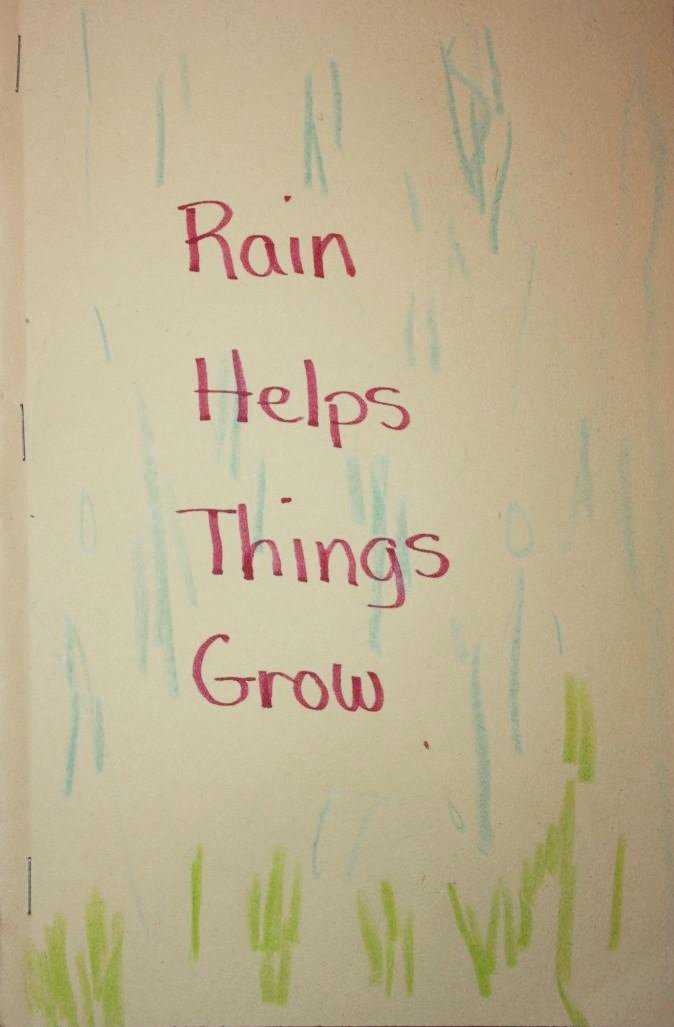 Rain
Helps
Things
Grow